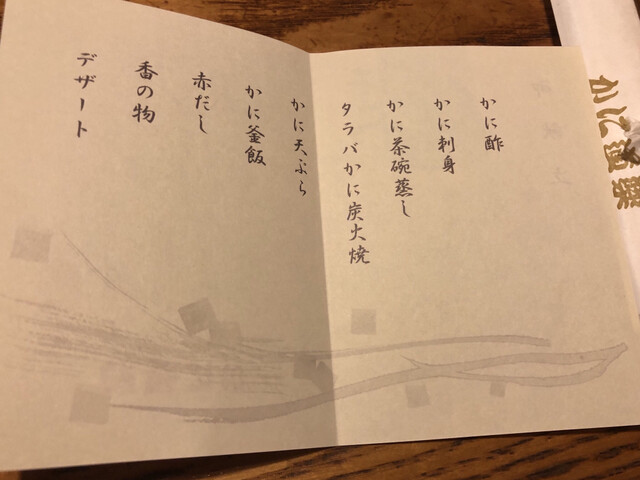 かに酢
かに刺身
かに茶碗蒸し
タラバかに炭火焼
かに天ぷら
かに釜飯
赤だし
香の物
デザート
かに道楽